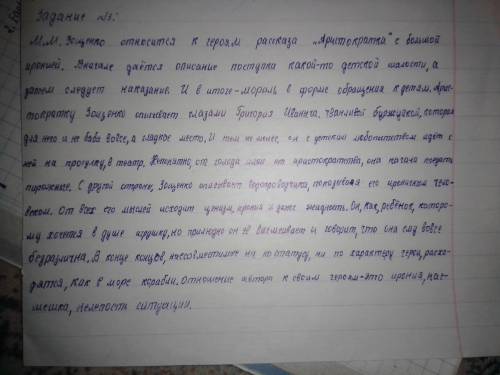 Задание №3.
М.М. Зощенко относится к героям рассказа „Аристократка" с большой
иронией. Вначале даётся описание поступка какой-то детской шалости, а
затем следует наказание. И в итоге-мораль в форме обращения к детям. Арис-
тократку Зощенко описывает глазами Григория Иваныча. Чванливой буржуазкой, которая
для него и не баба вовсе, а гладкое место. И тем не менее, он с детским любопытством идёт с
ней на прогулку, в театр. от голода или от аристократства, она начала поедать
пирожные. С другой стороны, Зощенко описывает водопроводчика, показывая его ироничным чело-
веком. От всех его мыслей исходит цинизм, ирония и даже жадность. Он, как ребёнок, которо-
му хочется в душе игрушку, но прилюдно он её высмеивает и говорит, что она ему вовсе
безразлична. В конце концов, ни по статусу, ни по характеру герои, расхо-
дятся, как в море корабли. Отношение автора к своим героям-это ирония, нас-
мешка, нелепость ситуации.